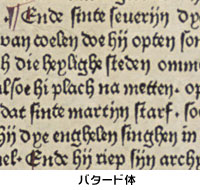 ¶ Ende sinte seuerijn dye
van coelen doe hij opten son
ch die heylighe steden omme
alsoe hi plach na metten · op
dat sinte martijn starf · soe
hij dye enghelen singhen in
nel · Ende hij riep sijn archi
バタード体